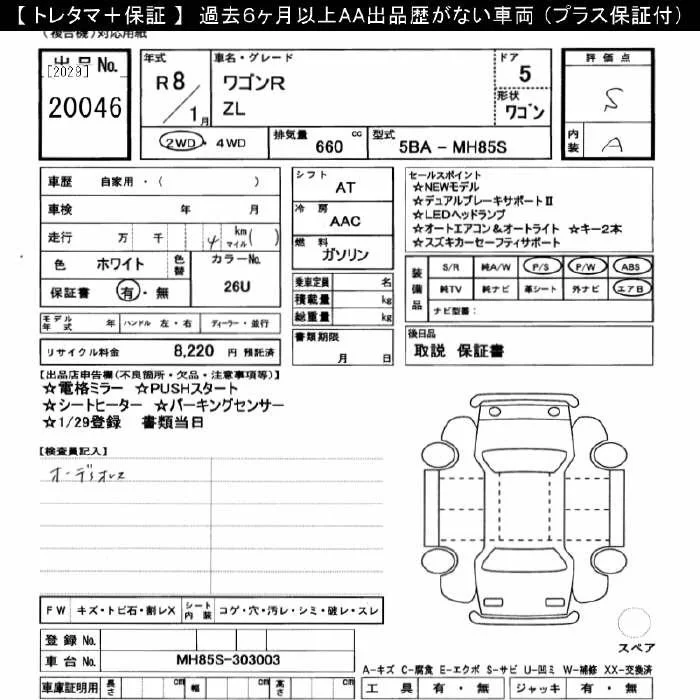 【 トレタマ＋保証 】 過去６ヶ月以上ＡＡ出品歴がない車両（プラス保証付）
(複合機)対応用紙
出品No.
[2029]
20046
年式
R 8 / 1 月
車名・グレード
ワゴンR
ZL
ドア
5
形状
ワゴン
評価点
S
内装
A
2WD・4WD
排気量 660 cc
型式 5BA - MH85S
車歴 自家用・( )
車検 年 月
走行 万 千 4 km マイル ( )
色 ホワイト 色替 カラーNo.
26U
保証書 有・無
シフト AT
冷房 AAC
燃料 ガソリン
乗車定員 名
積載量 kg
総重量 kg
セールスポイント
☆NEWモデル
☆デュアルブレーキサポートⅡ
☆LEDヘッドランプ
☆オートエアコン＆オートライト ☆キー2本
☆スズキカーセーフティサポート
装備品
S/R 純A/W P/S P/W ABS
純TV 純ナビ 革シート 外ナビ エアB
ナビ型番：
モデル年式 年 ハンドル 左・右 ディーラー・並行
リサイクル料金 8,220 円 預託済
書類期限
月 日
後日品
取説 保証書
【出品店申告欄(不良箇所・欠品・注意事項等)】
☆電格ミラー ☆PUSHスタート
☆シートヒーター ☆パーキングセンサー
☆1/29登録 書類当日
【検査員記入】
オーディオレス
FW キズ・トビ石・割レX シート内装 コゲ・穴・汚レ・シミ・破レ・スレ
登録 No.
車台 No. MH85S-303003
車庫証明用 長さ cm 幅 cm 高さ cm
スペア
A-キズ C-腐食 E-エクボ S-サビ U-凹ミ W-補修 XX-交換済
工具 有・無 ジャッキ 有・無